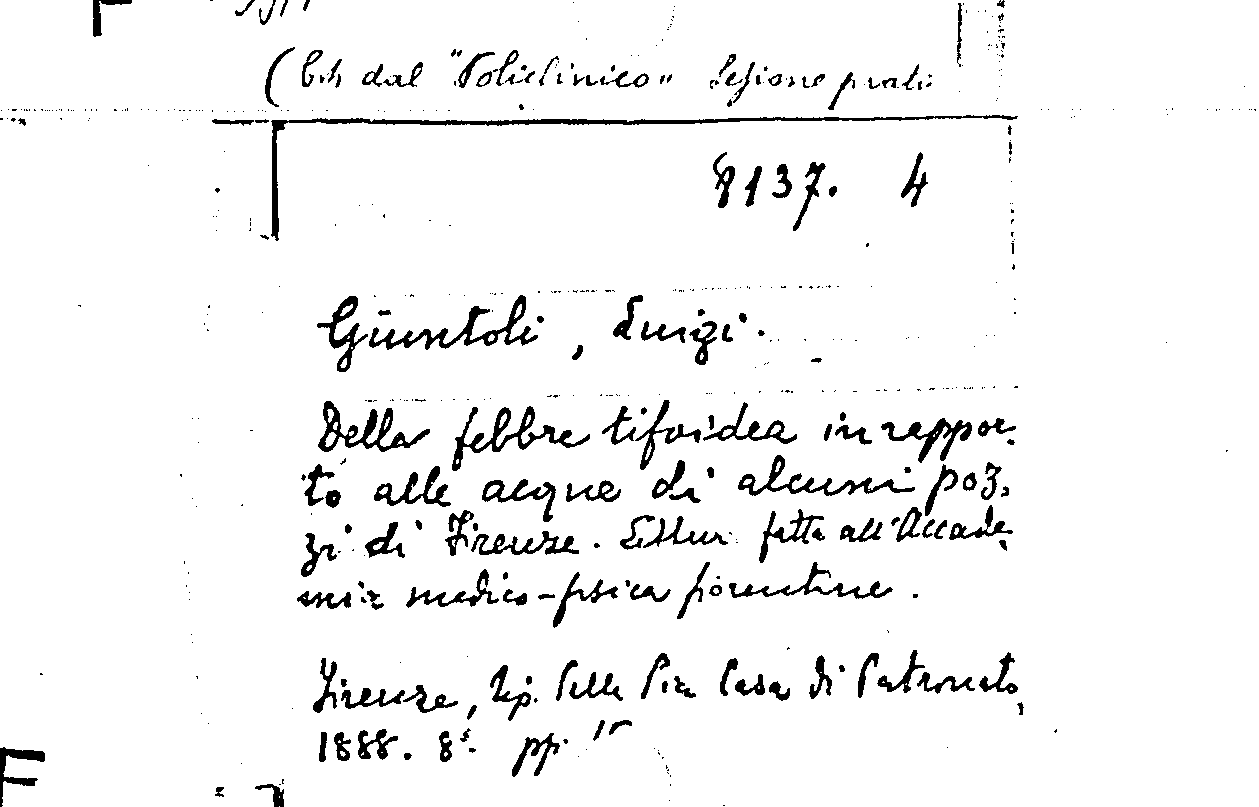 (Estr dal "Policlinico" Sezione prati
8137. 4
Giuntoli, Luigi.
Della febbre tifoidea in rappor-
to alle acque di alcuni poz-
zi di Firenze. Lettur fatta all'Accade-
mia medico-fisica fiorentina.
Firenze, Tip. della Pia Casa di Patronato,
1888. 8º. pp.
F